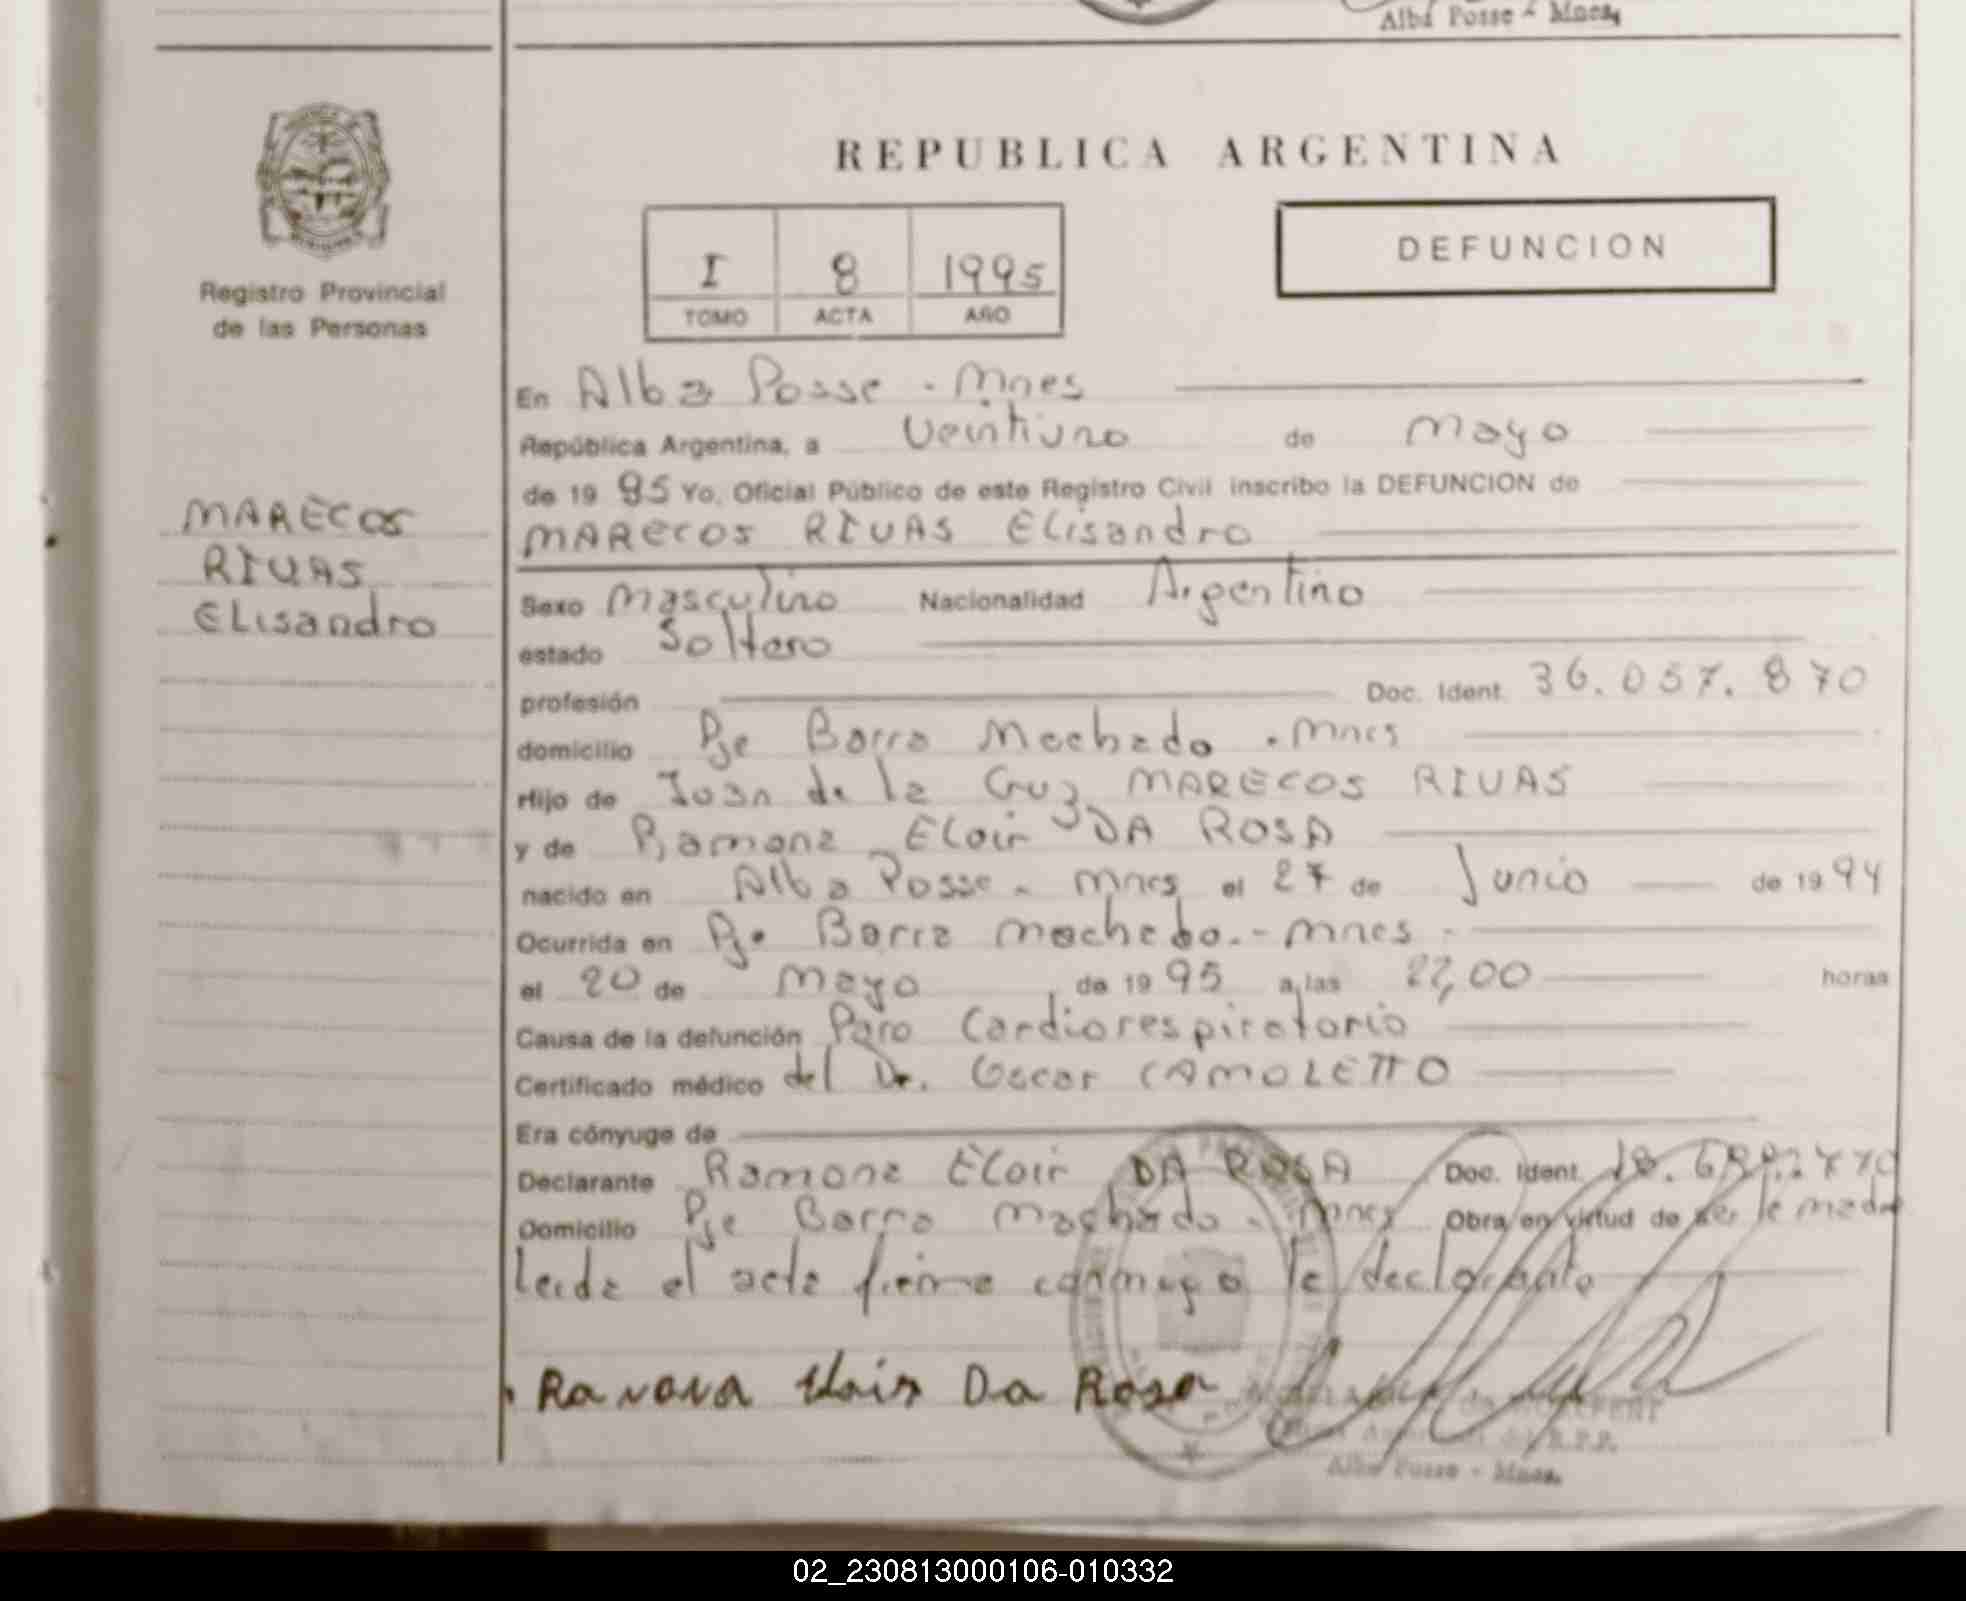 Alba Posse - Mnes.
REPUBLICA ARGENTINA
I 8 1995
TOMO ACTA AÑO
DEFUNCION
Registro Provincial
de las Personas
MARECOS
RIVAS
ELisandro
En Alba Posse - Mnes
República Argentina, a Veintiuno de Mayo
de 19 95 Yo, Oficial Público de este Registro Civil inscribo la DEFUNCION de
MARECOS RIVAS ELisandro
Sexo Masculino Nacionalidad Argentino
estado Soltero
profesión Doc. Ident. 36.057.870
domicilio Pje Barra Machado - Mnes
Hijo de Juan de la Cruz MARECOS RIVAS
y de Ramona Eloir DA ROSA
nacido en Alba Posse - Mnes el 27 de Junio de 19 94
Ocurrida en Pje Barra Machado - Mnes -
el 20 de Mayo de 19 95 a las 22,00 horas
Causa de la defunción Paro Cardiorespiratorio
Certificado médico del Dr. Oscar CAMOLETTO
Era cónyuge de
Declarante Ramona Eloir DA ROSA Doc. Ident.
Domicilio Pje Barra Machado - Mnes Obra en virtud de ser la madre
Leida el acta firma conmigo la declarante
Ramona Eloir Da Rosa
Alba Posse - Mnes.
02_230813000106-010332